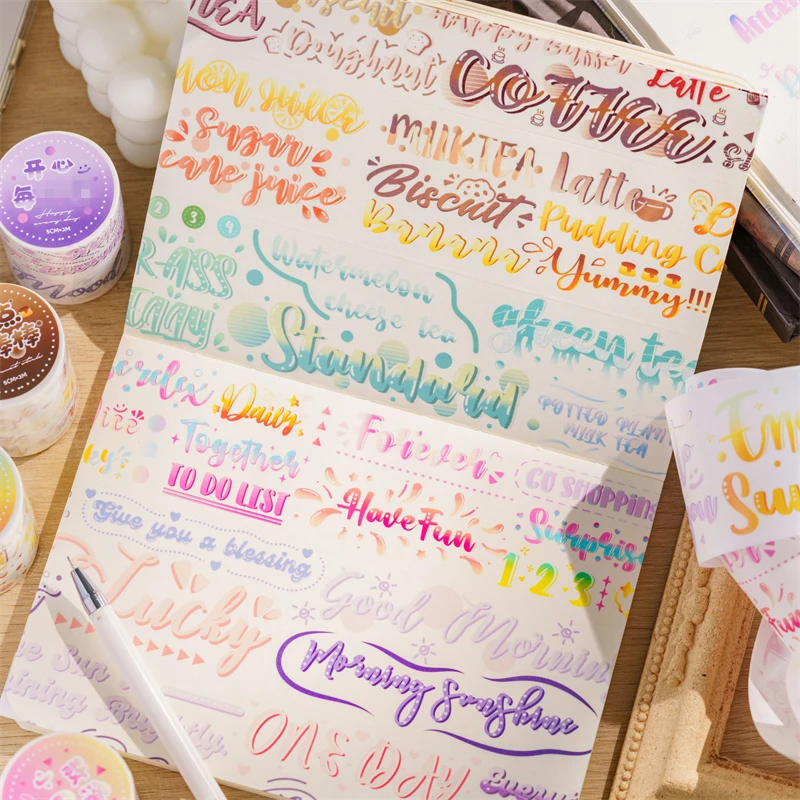 TEA
Biscuit
Doughnut
Latte
COFFEE
Sugar
cane juice
MILKTEA
Latte
Biscuit
Pudding
Banana
Yummy!!!
2 3 4
Watermelon
cheese tea
green tea
Standard
POTTED PLANT
MILK TEA
Daily
Together
TO DO LIST
Forever
GO SHOPPING
Have Fun
Surprise
1·2·3
Give you a blessing
Lucky
Good Morning
Morning Sunshine
The Sun
ONE DAY
开心
每
Happy
5CM×3M
5CM×3M